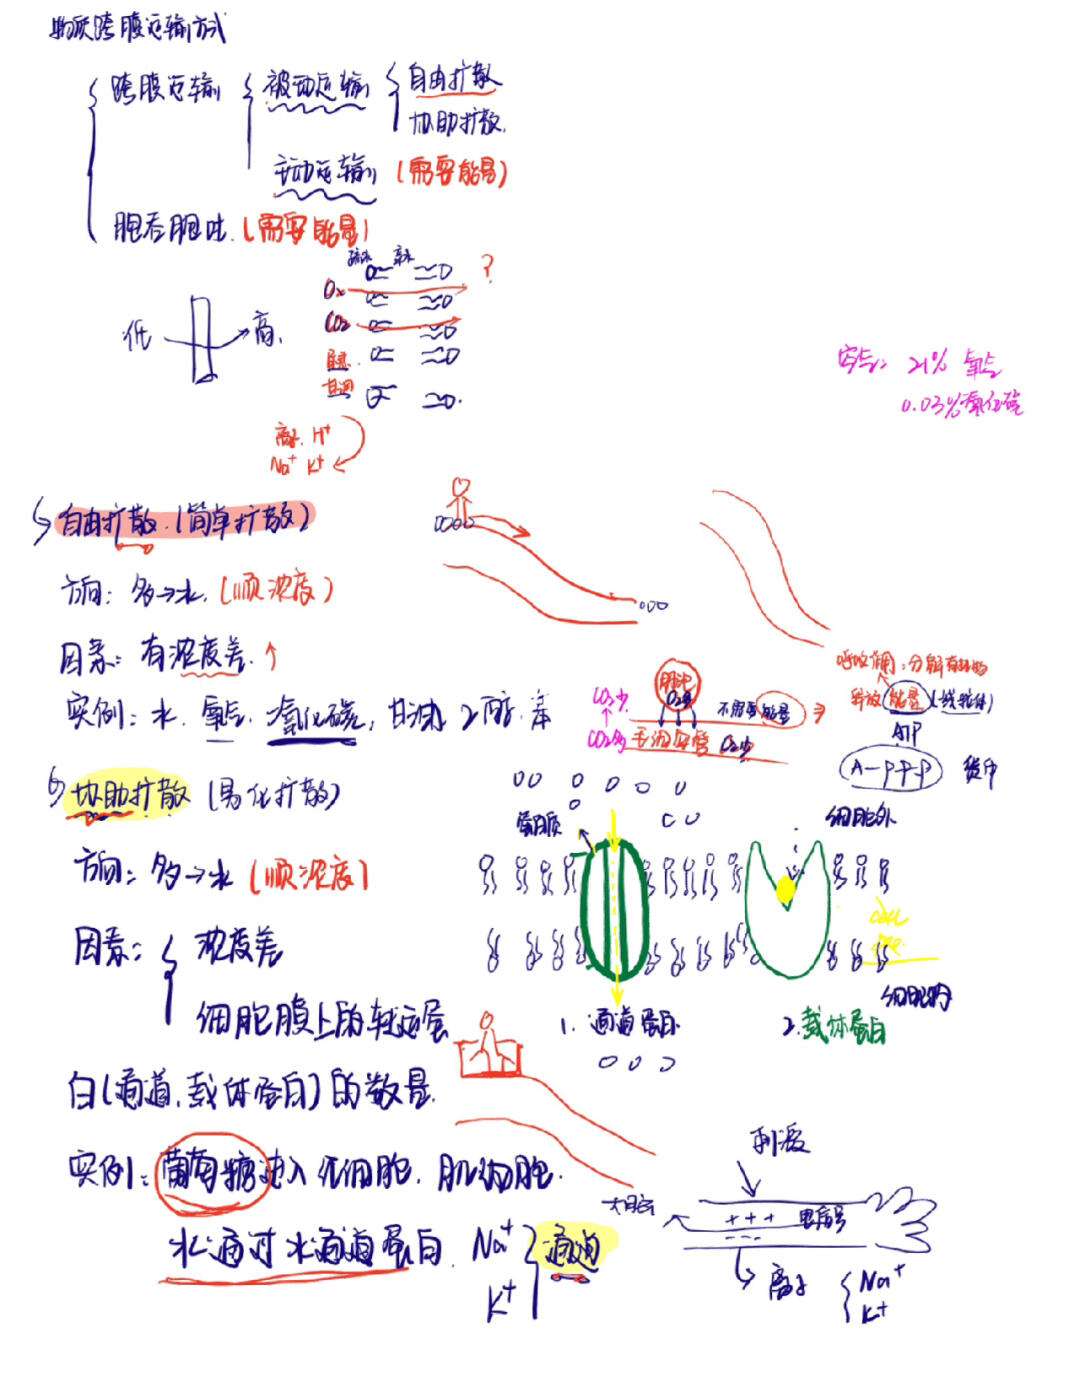 物质跨膜运输方式
跨膜运输 被动运输 自由扩散
协助扩散.
主动运输 (需要能量)
胞吞胞吐.(需要能量)
疏水 亲水
O₂ ?
CO₂
低 高.
甘油
空气: 21% 氧气
0.03%
离子. H⁺
Na⁺ K⁺
自由扩散.(简单扩散)
方向: 多→少. (顺浓度)
因素: 有浓度差.↑
实例: 水. 氧气. 二氧化碳, 甘油 乙醇. 苯
呼吸作用: 分解有机物
释放能量 (线粒体)
ATP
A-P-P-P 货币
肺泡
CO₂少. O₂多 不需要能量
CO₂多 毛细血管 O₂少
协助扩散 (易化扩散)
方向: 多→少 (顺浓度)
因素: 浓度差
细胞膜上的转运蛋
白(通道.载体蛋白)的数量.
蛋白质
细胞外
细胞内
1. 通道蛋白.
2.载体蛋白
实例: 葡萄糖进入红细胞. 肌细胞.
水通过水通道蛋白. Na⁺
K⁺ 通道
刺激
大脑 +++ 电信号
---
离子 Na⁺
K⁺